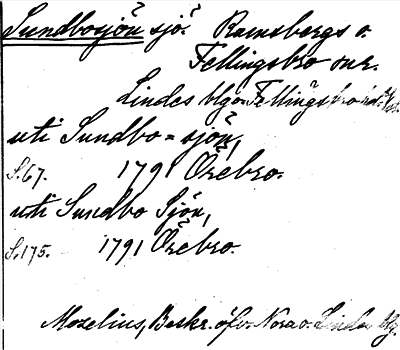 Sundbosjön sjö. Ramsbergs o.
Fellingsbro snr.
Lindes blg o. Fellingsbro hd.
uti Sundbo=sjön,
S.67. 1791 Örebro.
uti Sundbo Sjön,
S.175. 1791 Örebro.
Mozelius, Beskr. öfv. Nora o. Linde blg.